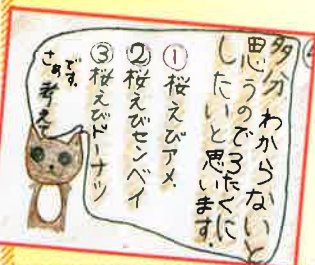 多分わからないと
思うので3たくに
したいと思います。
① 桜えびアメ
② 桜えびセンベイ
③ 桜えびドーナツ
です。
さぁ考えて